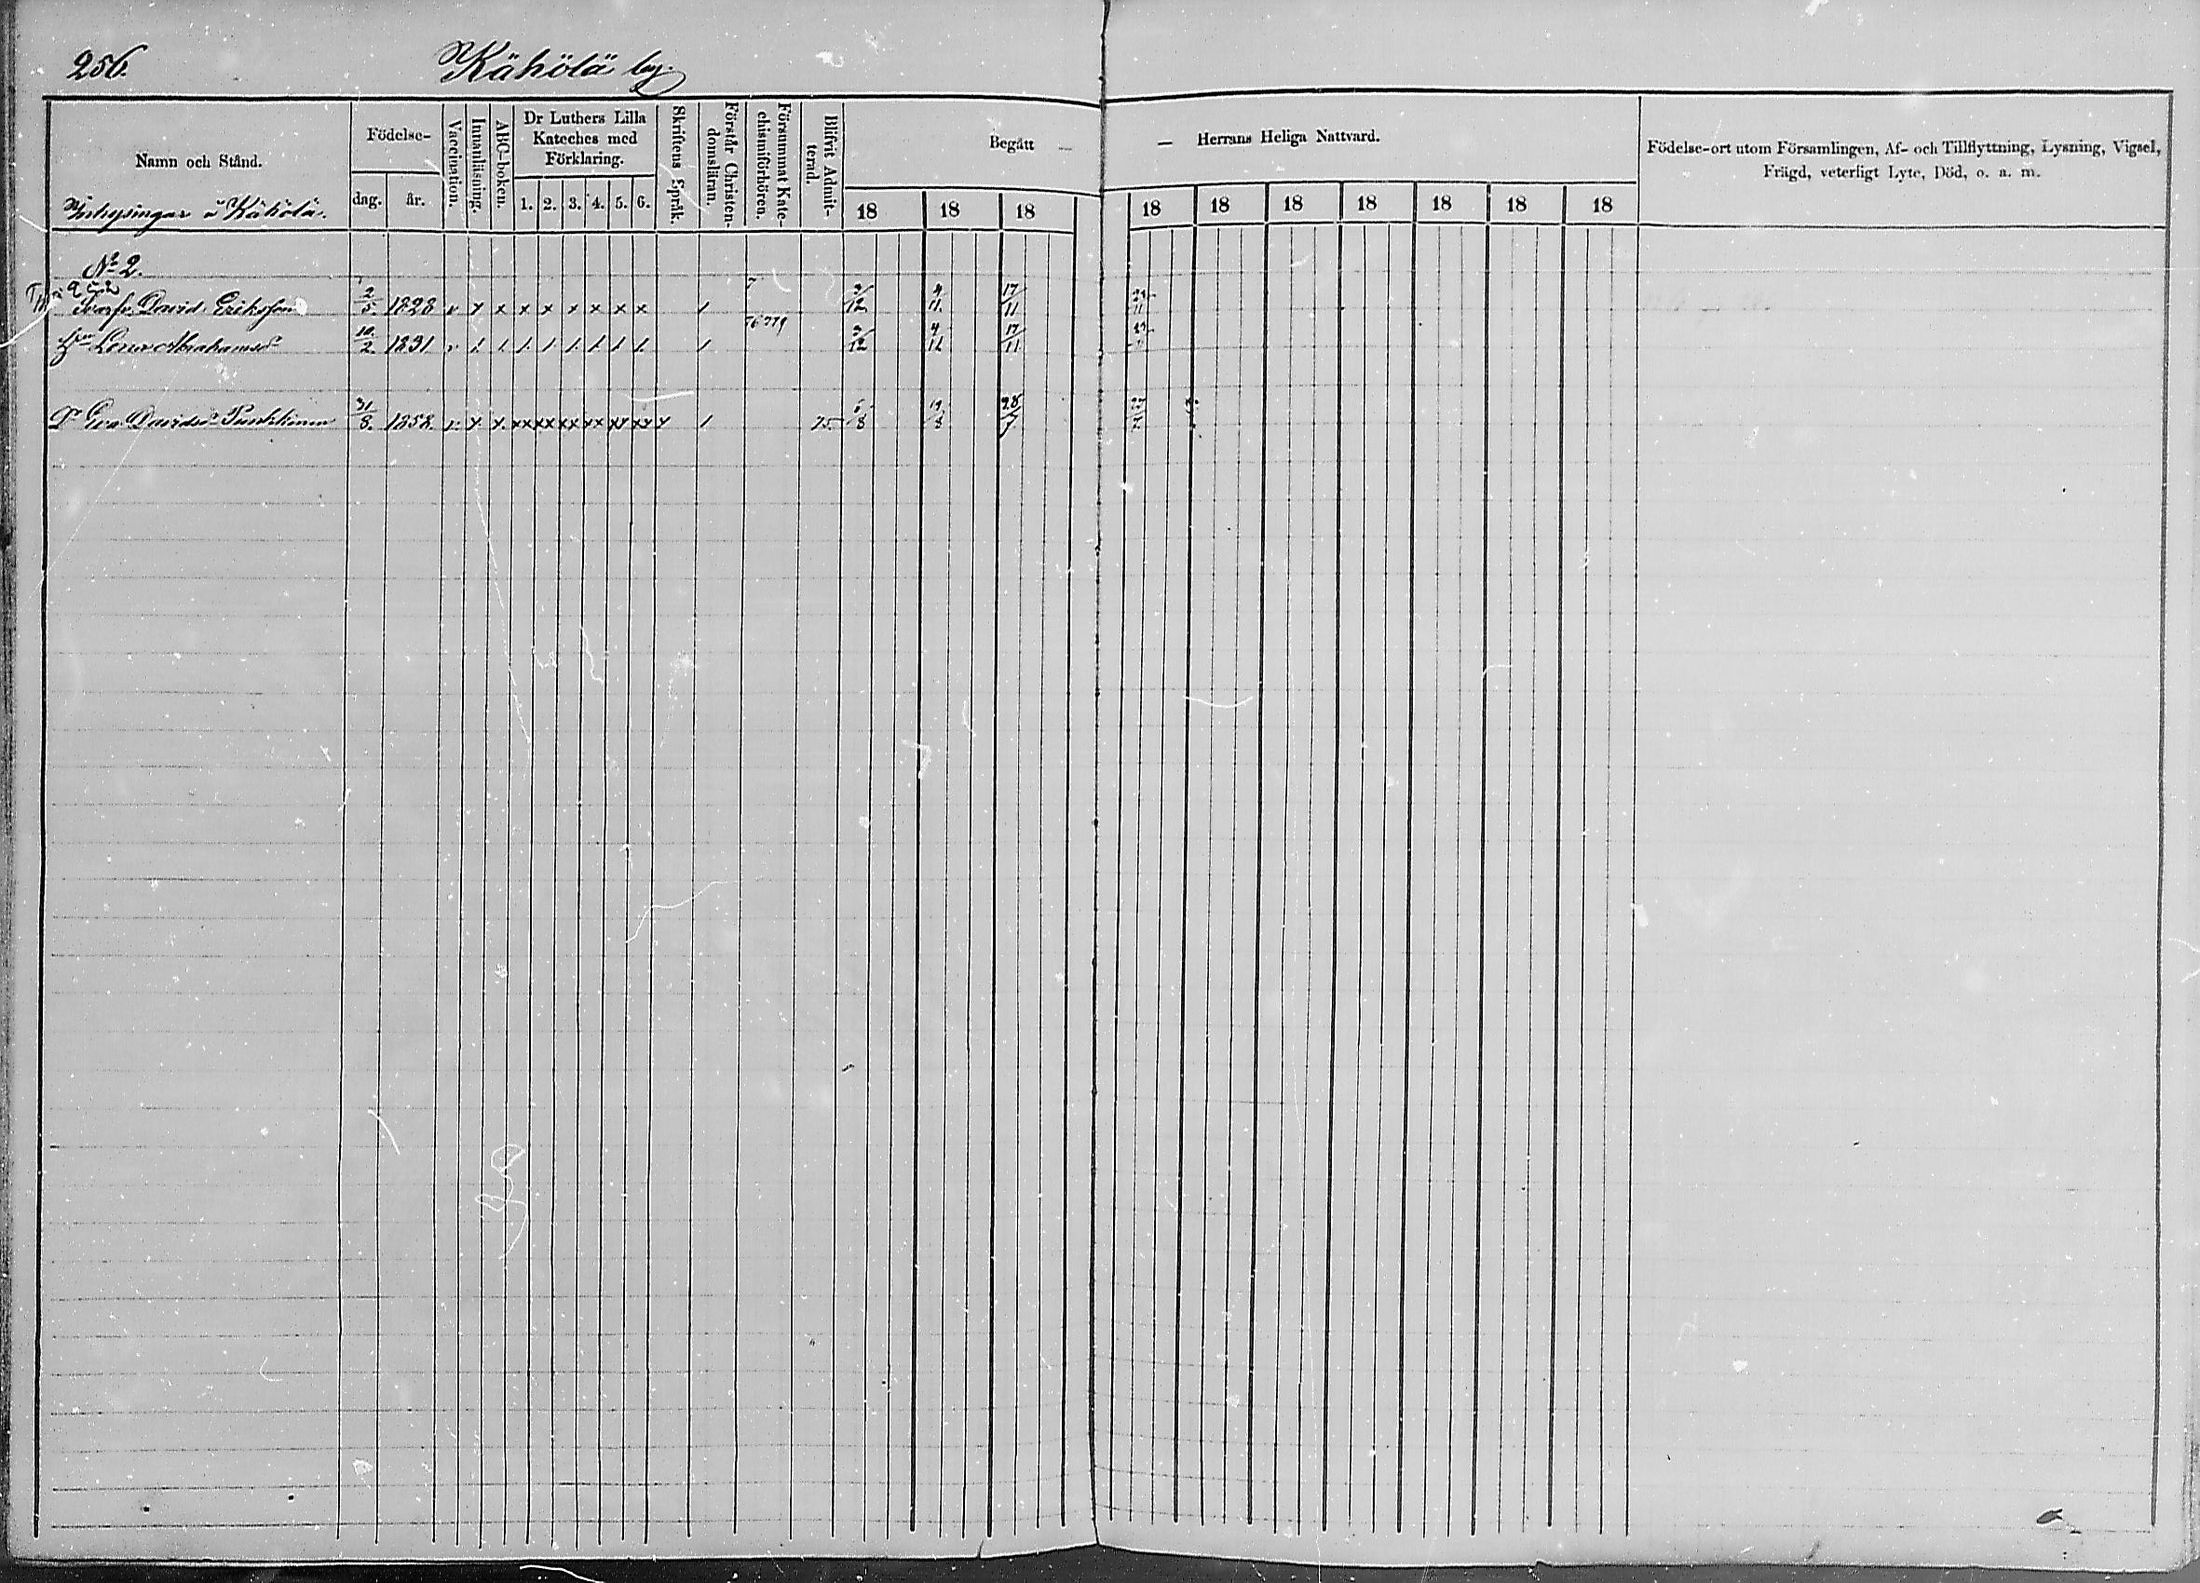 256.
Kähölä by.
Namn och Stånd.
Födelse-
dag. år.
Vaccination.
Innanläsning.
ABC-boken.
Dr Luthers Lilla
Kateches med
Förklaring.
1. 2. 3. 4. 5. 6.
Skriftens Språk.
Förstår Christen-
domsläran.
Försummat Kate-
chismiförhören.
Blifvit Admit-
terad.
Begått —
— Herrans Heliga Nattvard.
18 18 18 18 18 18 18 18 18 18
Födelse-ort utom Församlingen, Af- och Tillflyttning, Lysning, Vigsel,
Frägd, veterligt Lyte, Död, o. a. m.
å Kähölä.
No 2.
David Eriksson 2/5. 1828 v x x x x x x x x 1 3/12 4/11. 17/11
Lena Abrahamsd 10/2. 1831 v 1. 1. 1. 1 1. 1. 1. 1. 1 76 779 3/12 4/11 17/11
Dr Eva Davidsd 31/8. 1858 v. x x. xx xx xx xx xx xx x 1 75. 6/8 19/8 28/7